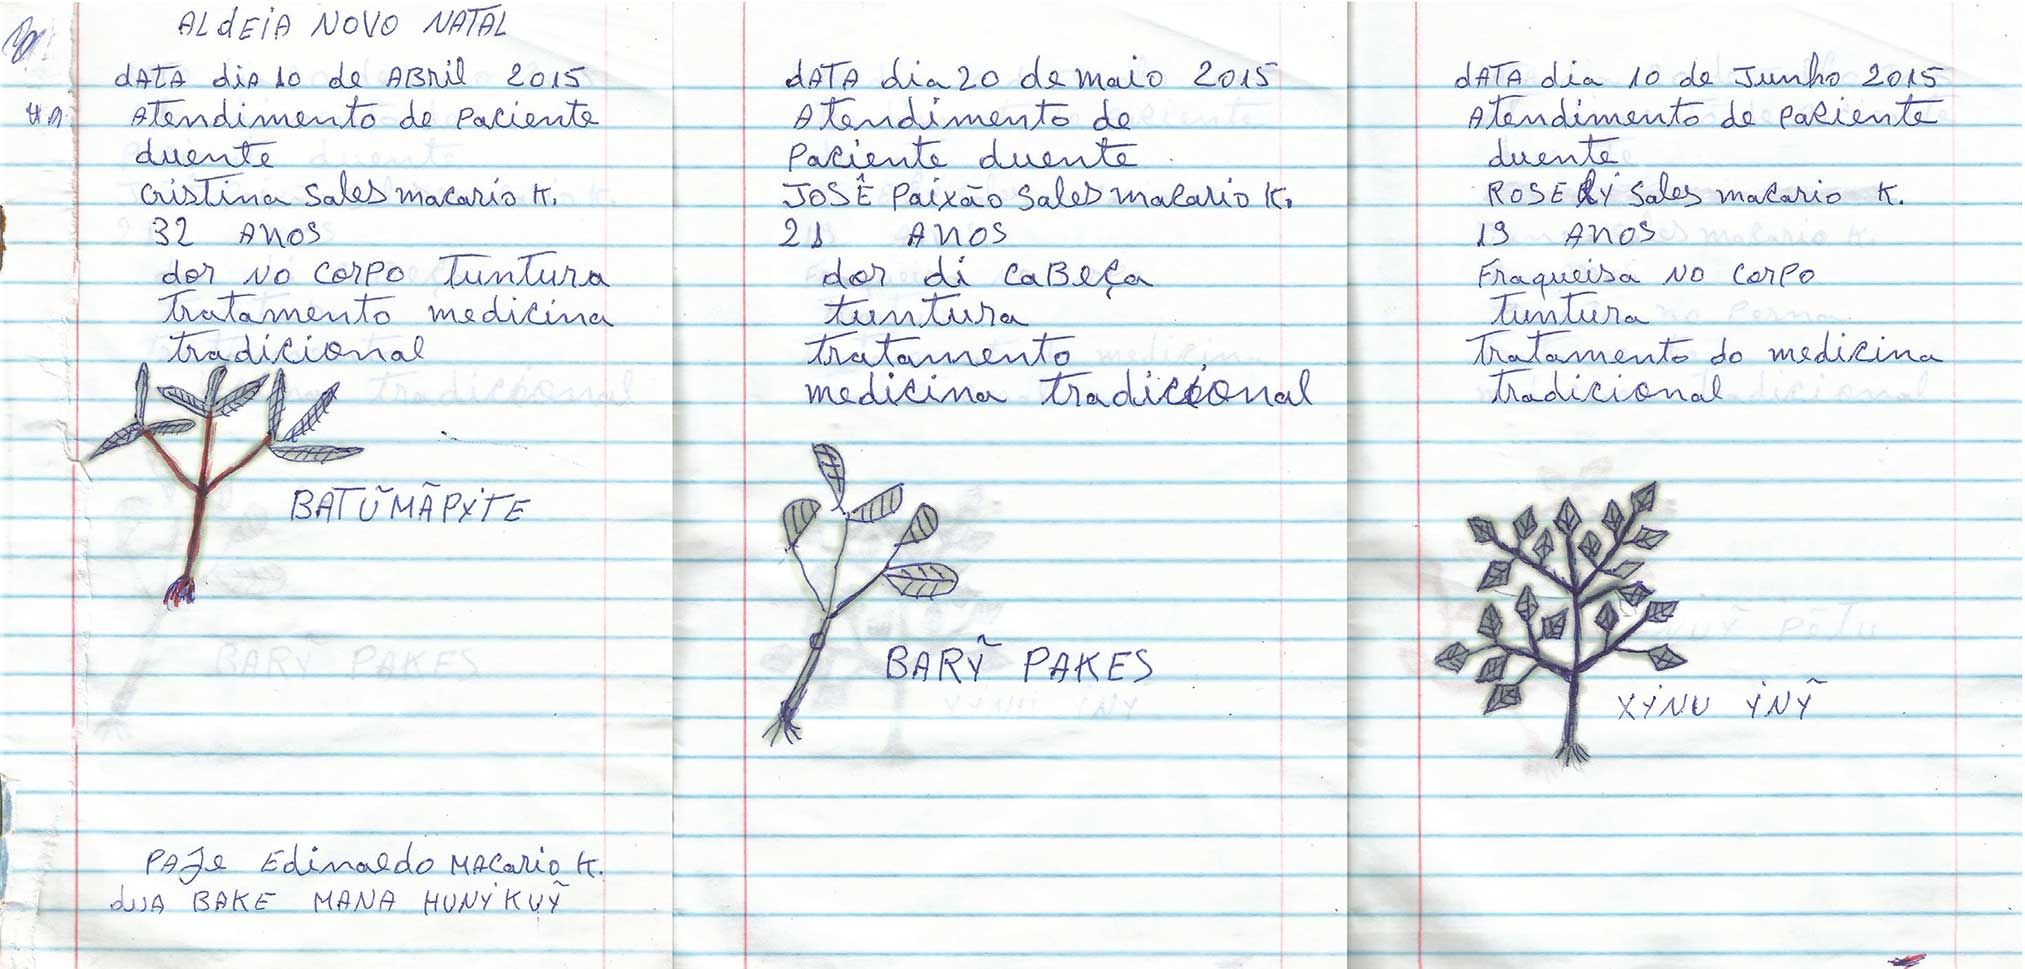 ALdEiA NOVO NATAL
dATA diA 10 de ABril 2015
Atendimento de Paciente
duente
Cristina Sales macario K.
32 ANOS
dor NO CORPO tuntura
tratamento medicina
tradicional
BATŨMÃPYTE
PAJe Edinaldo MACario K.
dUA BAKE MANA HUNYKUỸ
dATA dia 20 de maio 2015
Atendimento de
Paciente duente
JOSÊ Paixão Sales macario K.
21 ANOS
dor di CaBeça
tuntura
tratamento
medicina tradicional
BARỸ PAKES
dATA dia 10 de Junho 2015
Atendimento de Paciente
duente
ROSELY Sales macario K.
19 ANOS
Fraqueisa NO CORPO
tuntura
tratamento do medicina
tradicional
XYNU YNỸ